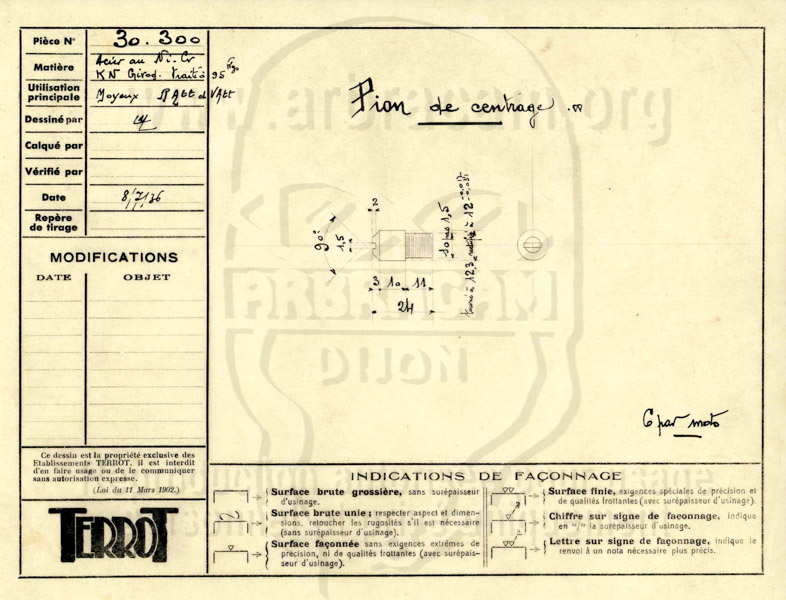 Pièce N° 30.300
Matière Acier au Ni-Cr
KN Girod. Traité à 95 Kgs
Utilisation
principale Moyeux
Dessiné par
Calqué par
Vérifié par
Date 8/7/36
Repère
de tirage
MODIFICATIONS
DATE OBJET
Ce dessin est la propriété exclusive des
Etablissements TERROT, il est interdit
d'en faire usage ou de le communiquer
sans autorisation expresse.
(Loi du 11 Mars 1902.)
TERROT
Pion de centrage
2
90°
1,5
10 pas 1,5
tourné à 12,3 rectifié à 12 -0,017
3 10 11
24
6 par moto
INDICATIONS DE FAÇONNAGE
Surface brute grossière, sans surépaisseur
d'usinage.
Surface brute unie; respecter aspect et dimen-
sions, retoucher les rugosités s'il est nécessaire
(sans surépaisseur d'usinage).
Surface façonnée sans exigences extrêmes de
précision, ni de qualités frottantes (avec surépais-
seur d'usinage).
Surface finie, exigences spéciales de précision et
de qualités frottantes (avec surépaisseur d'usinage).
Chiffre sur signe de façonnage, indique
en m/m la surépaisseur d'usinage.
Lettre sur signe de façonnage, indique le
renvoi à un nota nécessaire plus précis.
www.arbracam.org
ARBRACAM
DIJON